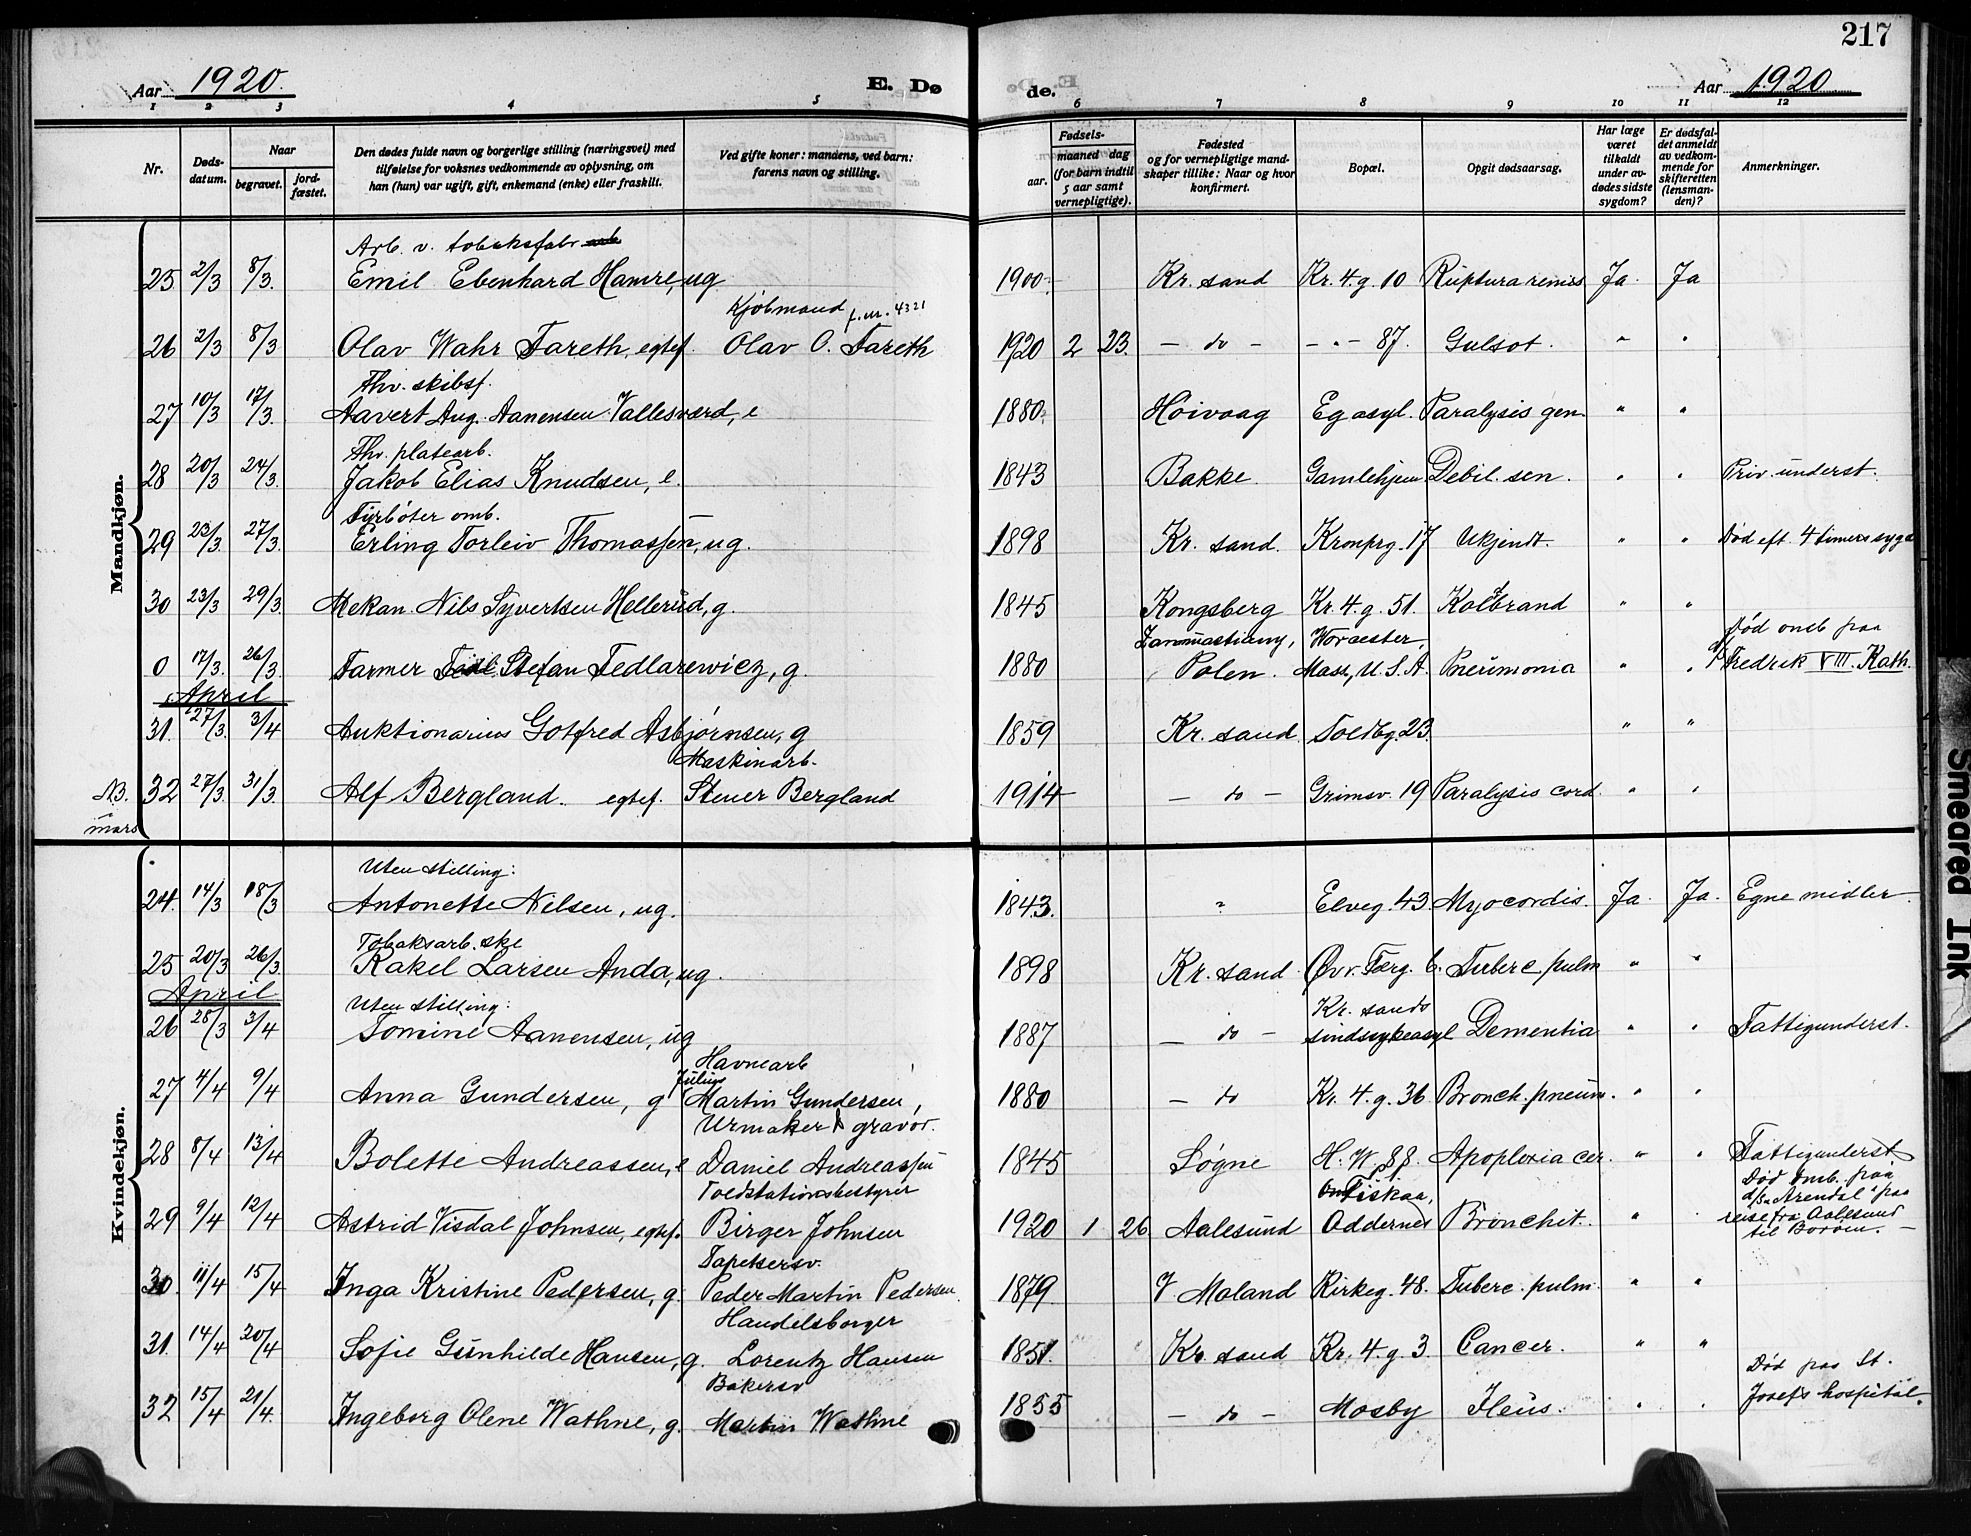 217
Aar 1920. E. Dø de. Aar 1920
1 2 3 4 5 6 7 8 9 10 11 12
Nr. Døds-datum. Naar begravet. jord-fæstet. Den dødes fulde navn og borgerlige stilling (næringsvei) med tilføielse for voksnes vedkommende av oplysning, om han (hun) var ugift, gift, enkemand (enke) eller fraskilt. Ved gifte koner: mandens, ved barn: farens navn og stilling. Fødsels- aar. maaned dag (for barn indtil 5 aar samt vernepligtige). Fødested og for vernepligtige mand-skaper tillike: Naar og hvor konfirmert. Bopæl. Opgit dødsaarsag. Har læge været tilkaldt under av-dødes sidste sygdom? Er dødsfal-det anmeldt av vedkom-mende for skifteretten (lensman-den)? Anmerkninger.
Mandkjøn.
Arb. v. tobaksfabr
25 2/3 8/3. Emil Ebenhard Hamre, ug 1900. Kr. sand Kr. 4. g. 10 Ruptura renis Ja. Ja
Kjøbmand f. nr. 4321
26 2/3 8/3 Olav Wahr Fareth, egtef. Olav O. Fareth 1920 2 23. – do – – " – 87. Gulsot. " "
Fhv. skibsf.
27 10/3 17/3. Aavert Aug. Aanensen Vallesværd, e 1880. Høivaag Eg asyl. Paralysis gen. " "
Fhv. platearb.
28 20/3 24/3. Jakob Elias Knudsen, e. 1843 Bakke Gamlehjem Debil. sen. " " Priv. underst.
Fyrbøter omb.
29 23/3. 27/3. Erling Torleiv Thomassen, ug. 1898 Kr. sand. Kronprg. 17 Ukjendt. " " Død eft. 4 timers sygd
30 23/3 29/3 Mekan. Nils Syvertsen Hellerud, g. 1845 Kongsberg Kr. 4. g. 51. Koldbrand " "
Worcester, Død omb paa
0 17/3. 26/3. Farmer Stefan Fedlarewicz, g. 1880 Polen. Mass, U. S. A. Pneumonia " " Fredrik VIII. Kath.
April
31. 27/3. 3/4 Auktionarius Gotfred Asbjørnsen, g 1859 Kr. sand. Toldbg. 23. " "
Maskinarb.
N3. mars 32 27/3. 31/3. Alf Bergland. egtef. Steuer Bergland 1914 – do – Grimsv. 19 Paralysis cord. " "
Kvindekjøn.
Uten stilling:
24. 14/3 18/3 Antonette Nilsen, ug. 1843. " Elveg. 43. Myocordis. Ja. Ja. Egne midler.
Tobaksarb.ske
25 20/3 26/3. Rakel Larsen Anda, ug. 1898 Kr. sand Øvr. Færg. 6. Tuberc pulm " "
April
Uten stilling: Kr. sands
26 28/3 3/4 Tomine Aanensen, ug 1887 – do – sindssykeasyl Dementia " " Fattigunderst.
Havnearb
Julius
27 4/4 9/4 Anna Gundersen, g Martin Gundersen, 1880 – do Kr. 4. g. 36 Bronch. pneum. " "
Urmaker gravør.
28 8/4 13/4 Bolette Andreassen, e Daniel Andreassen 1845 Søgne H. W. 88. Apoplexia cer. " " Fattigunderst
Toldstationsbestyrer Fiskaa, Død omb. paa d/s "Arendal" paa
29 9/4 12/4 Astrid Visdal Johnsen, egtef. Birger Johnsen 1920 1 26 Aalesund Oddernes Bronchit. " " reise fra Aalesund til Borøen. –
Tapetsersv.
30. 11/4 15/4 Inga Kristine Pedersen, g. Peder Martin Pedersen. 1879. V. Moland Kirkeg. 48. Tuberc. pulm. " "
Handelsborger
31. 14/4 20/4 Sofie Gunhilde Hansen, g. Lorentz Hansen 1851. Kr. sand Kr. 4. g. 3 Cancer. " "
Bakersv Død paa St.
32 15/4 21/4. Ingeborg Olene Wathne, g. Martin Wathne 1855 – do – Mosby Ileus. " " Josefs hospital.
Smeared Ink